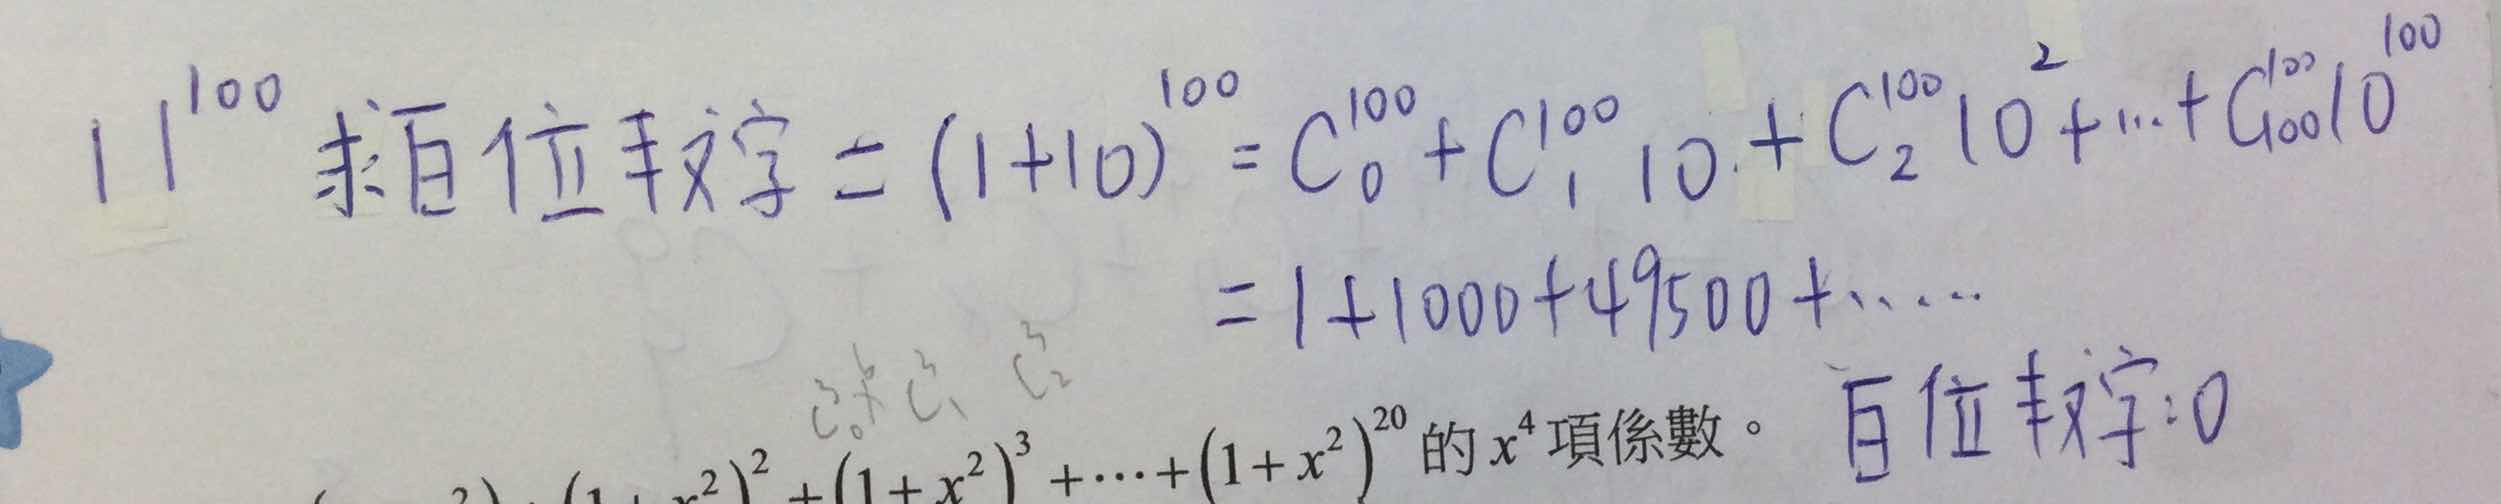 11^100 求百位數字 = (1+10)^100 = C_0^100 + C_1^100 10 + C_2^100 10^2 + ... + C_100^100 10^100
= 1 + 1000 + 49500 + ......
百位數字:0
(1+x^2)^2 + (1+x^2)^3 + ⋯ + (1+x^2)^20 的 x^4 項係數。